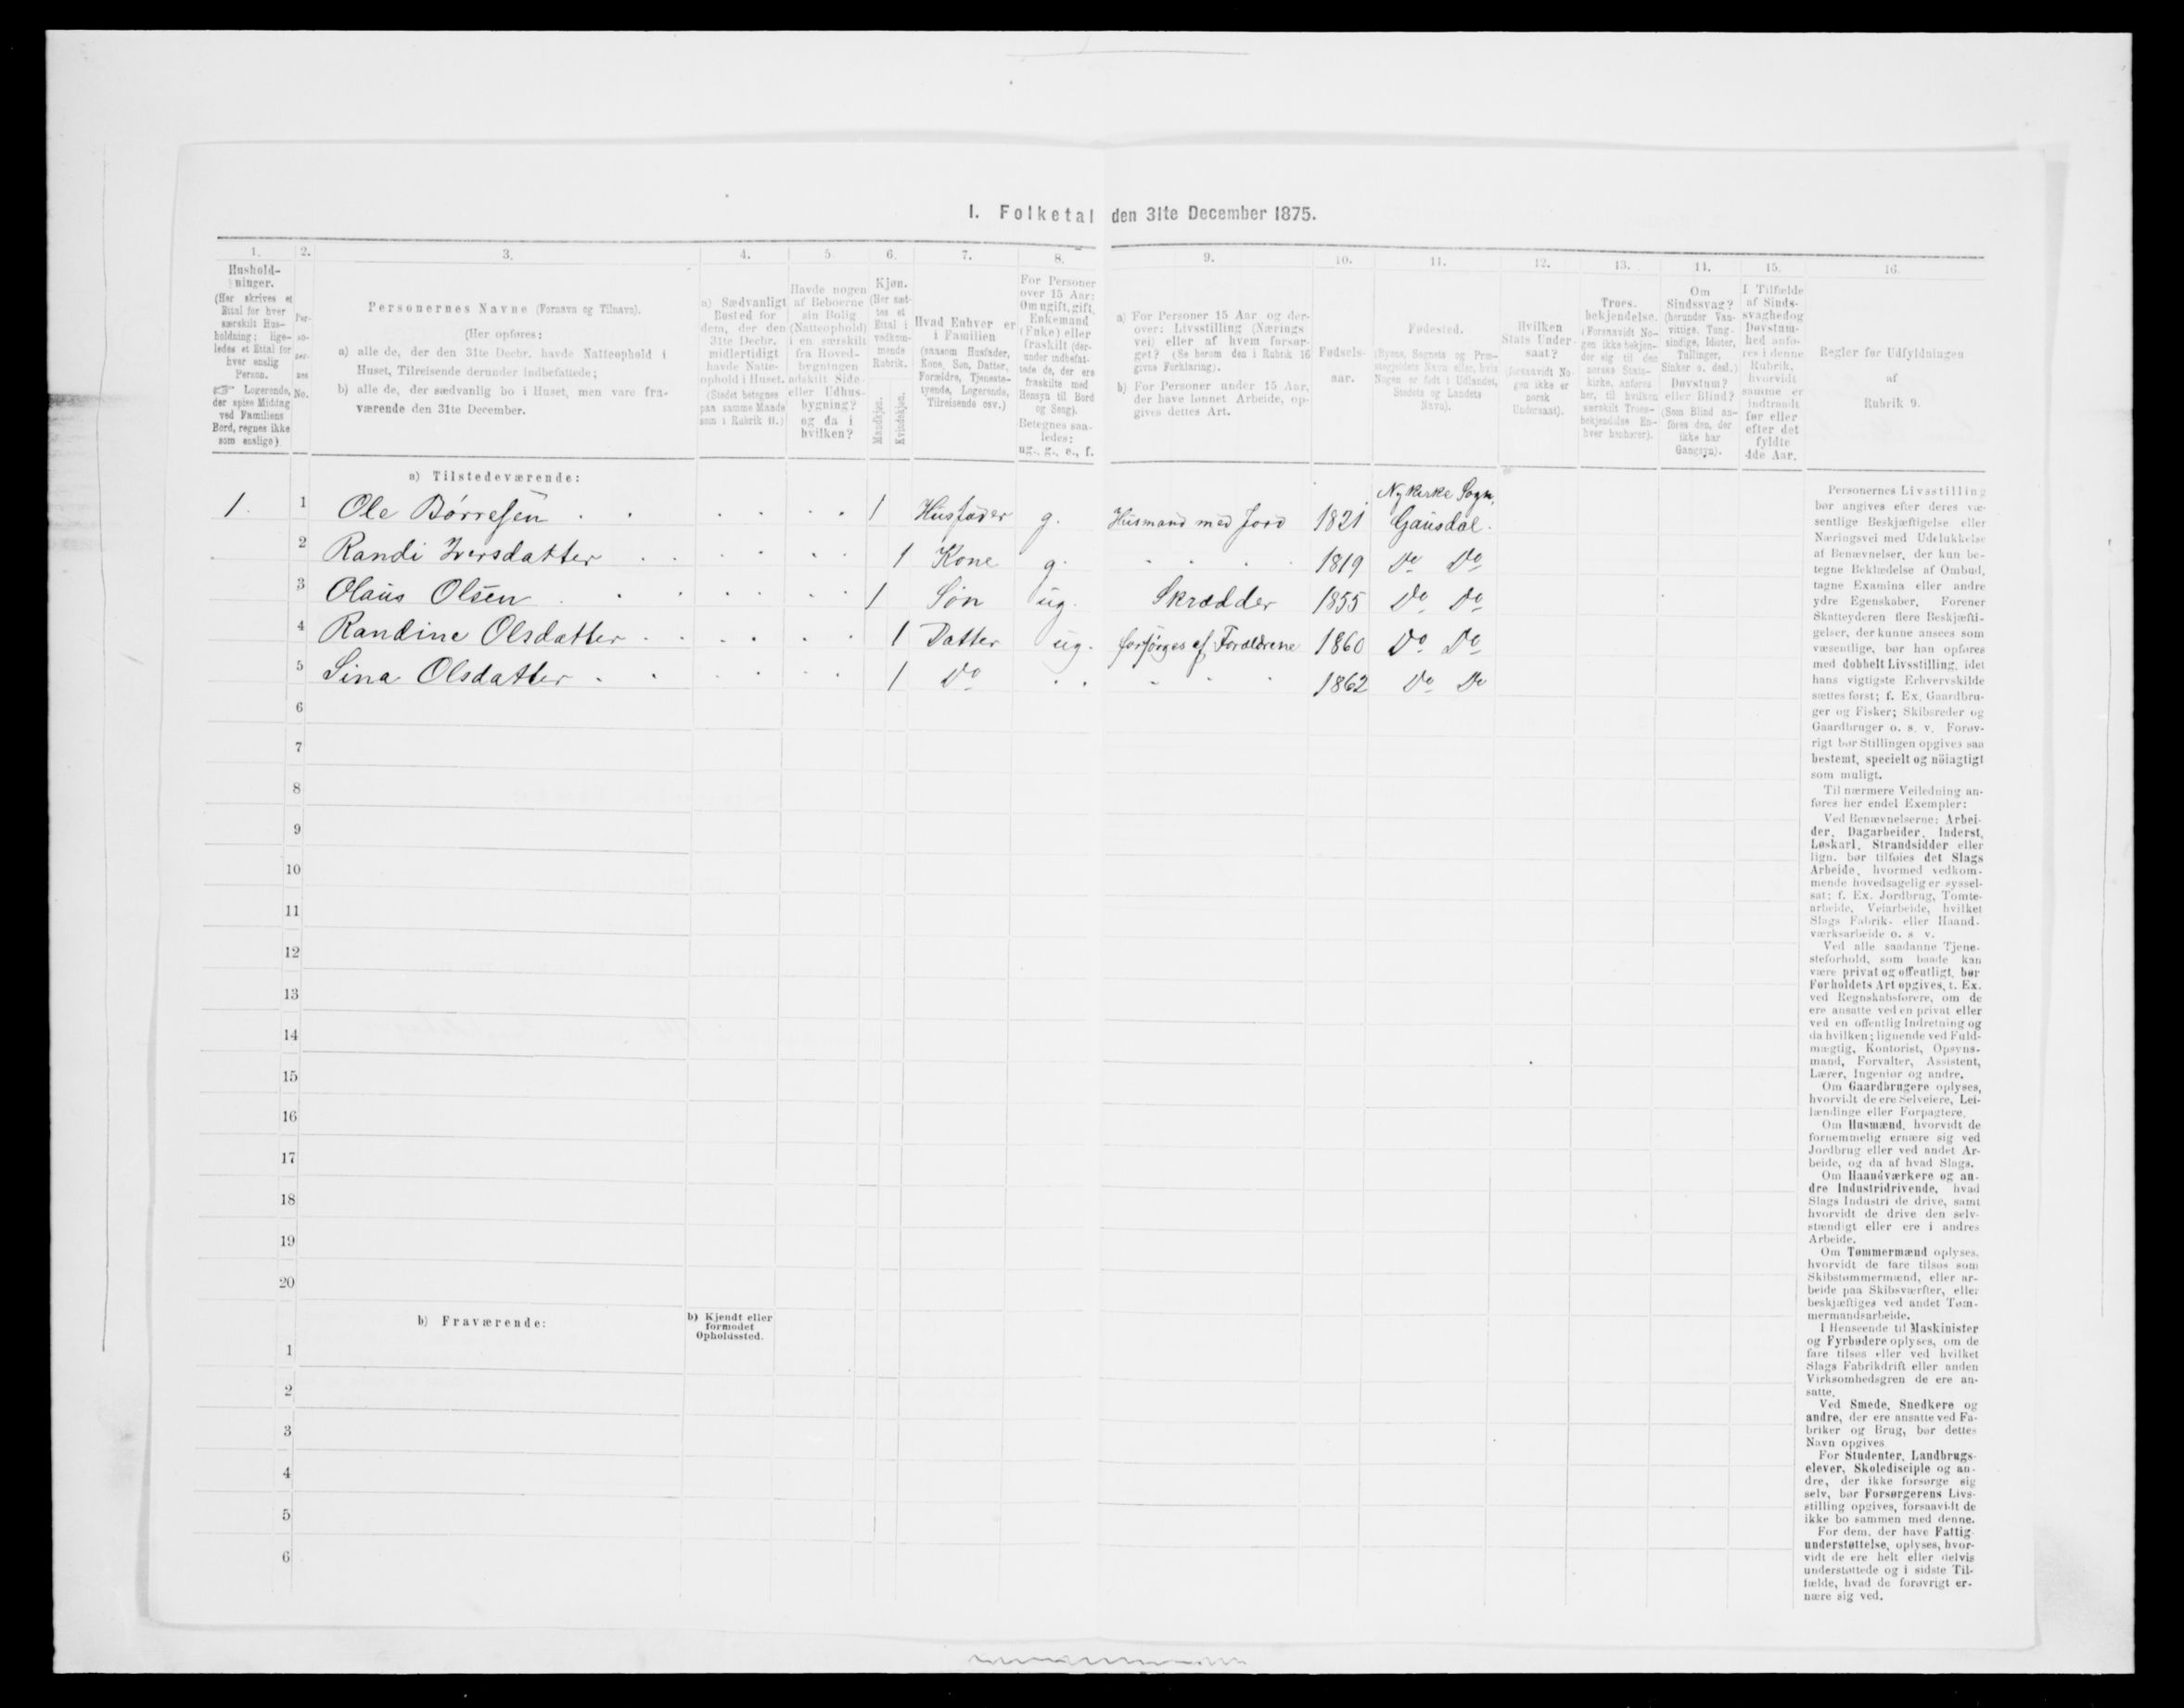 I. Folketal den 31te December 1875.
1.
2.
3.
4.
5
6.
7.
8.
9.
10.
11.
12.
13.
14.
15.
16.
Hushold-
ninger.
(Her skrives et
Ettal for hver
særskilt Hus-
holdning; lige-
ledes et Ettal for
hver enslig
Person.
Logerende,
der spise Middag
ved Familiens
Bord, regnes ikke
som enslige)
Per-
so-
ner-
nes
No.
Personernes Navne (Fornavn og Tilnavn).
(Her opføres:
a) alle de, der den 31te Decbr. havde Natteophold i
Huset, Tilreisende derunder indbefattede;
b) alle de, der sædvanlig bo i Huset, men vare fra-
værende den 31te December.
a) Sædvanligt
Bosted for
dem, der den
31te Decbr.
midlertidigt
havde Natte-
ophold i Huset.
(Stedet betegnes
paa samme Maade
som i Rubrik 11.)
Havde nogen
af Beboerne
sin Bolig
(Natteophold)
i en særskilt
fra Hoved-
bygningen
adskilt Side-
eller Udhus-
bygning?
og da i
hvilken?
Kjøn.
(Her sæt-
tes et
Ettal i
vedkom-
mende
Rubrik.
Mandkjøn.
Kvindekjøn.
Hvad Enhver er
i Familien
(saasom Husfader,
Kone, Søn, Datter,
Forældre, Tjeneste-
tyende, Logerende,
Tilreisende osv.)
For Personer
over 15 Aar:
Om ugift, gift,
Enkemand
(Enke) eller
fraskilt (der-
under indbefat-
tede de, der ere
fraskilte med
Hensyn til Bord
og Seng).
Betegnes saa-
ledes:
ug., g., e., f.
a) For Personer 15 Aar og der-
over: Livsstilling (Nærings
vei) eller af hvem forsør-
get? (Se herom den i Rubrik 16
givne Forklaring).
b) For Personer under 15 Aar,
der have lønnet Arbeide, op-
gives dettes Art.
Fødsels-
aar.
Fødested.
(Byens, Sognets og Præ-
stegjeldets Navn eller, hvis
Nogen er født i Udlandet,
Stedets og Landets
Navn).
Hvilken
Stats Under-
saat?
(forsaavidt No-
gen ikke er
norsk
Undersaat).
Troes-
bekjendelse.
(Forsaavidt No-
gen ikke bekjen-
der sig til den
norske Stats-
kirke, anføres
her, til hvilken
særskilt Troes-
bekjendelse En-
hver henhører).
Om
Sindssvag?
(herunder Van-
vittige, Tung-
sindige, Idioter,
Tullinger,
Sinker o. desl.)
Døvstum?
eller Blind?
(Som Blind an-
føres den, der
ikke har
Gangsyn).
I Tilfælde
af Sinds-
svaghedog
Døvstum-
hed anfø-
res i denne
Rubrik,
hvorvidt
samme er
indtraadt
før eller
efter det
fyldte
4de Aar.
Regler for Udfyldningen
af
Rubrik 9.
a) Tilstedeværende:
Nykirke Sogn,
1. 1 Ole Børresen 1 Husfader g. Husmand med Jord 1821 Gausdal.
2 Randi Iversdatter 1 Kone g. 1819 Do Do
3 Olaus Olsen 1 Søn ug. Skrædder 1855 Do Do
4 Randine Olsdatter 1 Datter ug. forsørges af Forældrene 1860 Do Do
5 Sina Olsdatter 1 Do 1862 Do Do
6
7
8
9
10
11
12
13
14
15
16
17
18
19
20
b) Fraværende:
b) Kjendt eller
formodet
Opholdssted.
1
2
3
4
5
6
Personernes Livsstilling
bør angives efter deres væ-
sentlige Beskjæftigelse eller
Næringsvei med Udelukkelse
af Benævnelser, der kun be-
tegne Beklædelse af Ombud,
tagne Examina eller andre
ydre Egenskaber. Forener
Skatteyderen flere Beskjæfti-
gelser, der kunne ansees som
væsentlige, bør han opføres
med dobbelt Livsstilling, idet
hans vigtigste Erhvervskilde
sættes først; f. Ex. Gaardbru-
ger og Fisker; Skibsreder og
Gaardbruger o. s. v. Forøv-
rigt bør Stillingen opgives saa
bestemt, specielt og nöiagtigt
som muligt.
Til nærmere Veiledning an-
føres her endel Exempler:
Ved Benævnelserne: Arbei-
der, Dagarbeider, Inderst,
Løskarl, Strandsidder eller
lign. bør tilføies det Slags
Arbeide, hvormed vedkom-
mende hovedsagelig er syssel-
sat; f. Ex. Jordbrug, Tomte-
arbeide, Veiarbeide, hvilket
Slags Fabrik- eller Haand-
værksarbeide o. s. v.
Ved alle saadanne Tjene-
steforhold, som baade kan
være privat og offentligt, bør
Forholdets Art opgives, t. Ex.
ved Regnskabsførere, om de
ere ansatte ved en privat eller
ved en offentlig Indretning og
da hvilken; lignende ved Fuld-
mægtig, Kontorist, Opsyns-
mand, Forvalter, Assistent,
Lærer, Ingeniør og andre.
Om Gaardbrugere oplyses,
hvorvidt de ere Selveiere, Lei-
lændinge eller Forpagtere.
Om Husmænd, hvorvidt de
fornemmelig ernære sig ved
Jordbrug eller ved andet Ar-
beide, og da af hvad Slags.
Om Haandværkere og an-
dre Industridrivende, hvad
Slags Industri de drive, samt
hvorvidt de drive den selv-
stændigt eller ere i andres
Arbeide.
Om Tømmermænd oplyses,
hvorvidt de fare tilsøs som
Skibstømmermænd, eller ar-
beide paa Skibsværfter, eller
beskjæftiges ved andet Tøm-
mermandsarbeide.
I Henseende til Maskinister
og Fyrbødere oplyses, om de
fare tilsøs eller ved hvilket
Slags Fabrikdrift eller anden
Virksomhedsgren de ere an-
satte.
Ved Smede, Snedkere og
andre, der ere ansatte ved Fa-
briker og Brug, bør dettes
Navn opgives
For Studenter, Landbrugs-
elever, Skoledisciple og an-
dre, der ikke forsørge sig
selv, bør Forsørgerens Livs-
stilling opgives, forsaavidt de
ikke bo sammen med denne.
For dem, der have Fattig
understøttelse, oplyses, hvor-
vidt de ere helt eller delvis
understøttede og i sidste Til-
fælde, hvad de forøvrigt er-
nære sig ved.